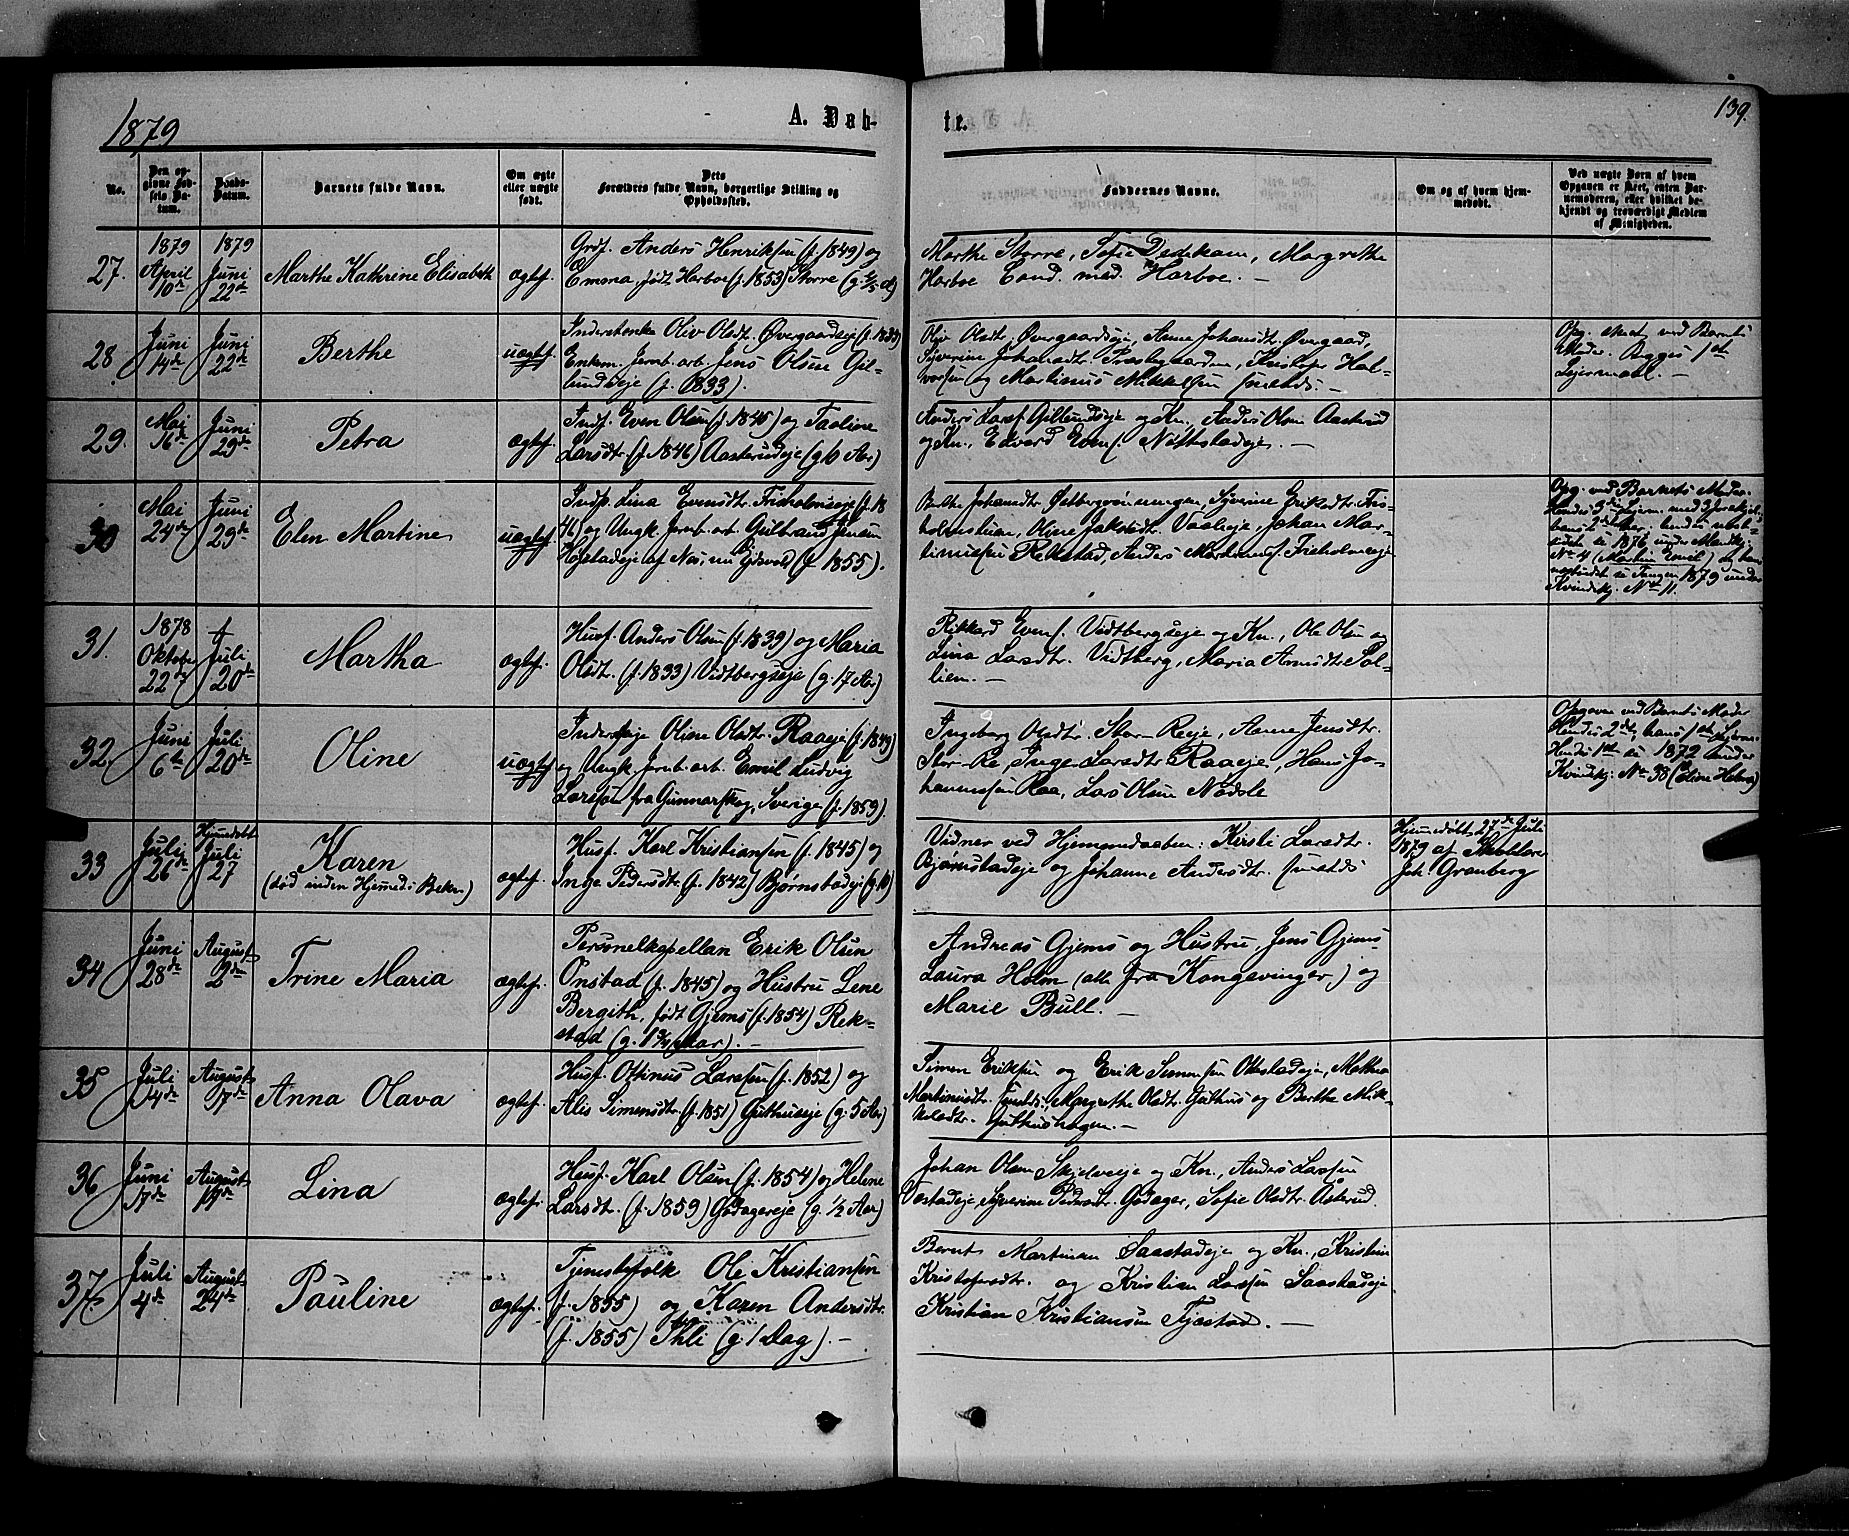 1879
A. Døb-
te.
139.
No.
Den op-
givne Fød-
sels Da-
tum.
Daabs-
Datum.
Barnets fulde Navn.
Om ægte
eller uægte
født.
Dets
Forældres fulde Navn, borgerlige Stilling og
Opholdssted.
Faddernes Navne.
Om og af hvem hjem-
medøbt.
Ved uægte Børn af hvem
Opgaven er skeet, enten Bar-
nemoderen, eller hvilket be-
kjendt og troværdigt Medlem
af Menigheden.
27.
1879
April
10de
1879
Juni
22de
Marthe Kathrine Elisabeth
ægtef.
Grdf. Anders Henriksen (f. 1849) og
Emma, født Harboe (f. 1853) Storre
Marthe Storre, Sofie Dedekam, Margrethe
Harboe Cand. med. Harboe. —
28.
Juni
14de
Juni
22de
Berthe
uægtef.
Inderstenke Oliv Olsdt. Øvergaardseje
Enkem. Jernb. arb. Jens Olsen Gil-
lundseje (f. 1833).
Oliv Olsdt. Øvergaardseje, Anne Johansdt. Øvergaard,
Syverine Johansdtr. Præstegaarden, Kristofer Hal-
vorsen og Martinus Mikkelsen
Opg. sket ved Barnets
Moder. Begges 1ste
Leiermaal. —
29.
Mai
16de
Juni
29de
Petra
ægtef.
Indf. Even Olsen (f. 1845) og Paoline
Larsdtr. (f. 1846) Aasterudeje (g. 10 Aar)
Anders Larsf. Gillundseje og Kn., Anders Olsen Aasterud
og Kn., Edvard Evenf. Nøttestadeje. —
30
Mai
24de
Juni
29de
Elen Martine
uægtef.
Indp. Lina Evensdtr. Fricholmseje (f. 18
og Ungk. Jernb. arb. Gulbrand Jensen
af Nes, nu Eidsvold (f. 1855).
Berthe Johansdtr. Syverine Eriksdtr. Fris-
Oline Jakobsdtr. Vaaleje, Johan Mar-
tiniussen Rekstad, Anders Mortensf. Fricholmseje
Opg. ved Barnets Moder.
Hendes 3die Leierm. med 3
hans 2det her; hendes
1876 under Mandkj.
No 4 (Martin Emil) og hans
i Tangen 1879 under
Kvindekj. No 11.
31.
1878
Oktober
22de
Juli
20de
Martha
ægtef.
Husf. Anders Olsen (f. 1839) og Maria
Olsdtr. (f. 1833) Vidtbergseje (g. 17 Aar)
Rikkard Evenf. Vidtbergseje og Kn., Ole Olsen og
Lina Larsdtr. Vidtberg, Maria Arnesdtr. Sol-
lien. —
32.
Juni
6te
Juli
20de
Oline
uægtef.
Oline Olsdtr. Raaeje (f. 1849)
og Ungk. Jernb. arb. Emil Ludvig
Larsson fra Gunnarskog, Sverige (f. 1859).
Ingeborg Olsdtr. Stor-Reeje, Anne Jensdtr.
Stor-Re, Inge Larsdtr. Raaeje, Hans Jo-
hannessen Raa, Lars Olsen Nødsle
Opgaven ved Barnets Moder
Hendes 2det, hans 1ste
Hendes 1ste i 1872 under
Kvindekj. No 38
33
Juli
26de
Hjemmedøbt
Juli
27
Karen
(død inden Hjemmed. Bekr.)
ægtef.
Husf. Karl Kristiansen (f. 1845) og
Inge Pedersdtr. (f. 1842) Bjørnstadeje
Vidner ved Hjemmedaaben: Kirsti Larsdtr.
Bjørnstadeje og Johanne Andersdtr.
Hjemmedøbt 27de Juli
1879 af Skolelærer
Joh. Granberg
34
Juni
28de
August
2den
Trine Maria
ægtef.
Personelkapellan Erik Olsen
Onstad (f. 1845) og Hustru Lene
Bergith, født Gjems (f. 1854) Rek-
stad (g. 1¾ Aar). —
Andreas Gjems og Hustru, Jens Gjems
Laura Holm (alle fra Kongsvinger) og
Marie Bull. —
35
Juli
14de
August
17de
Anna Olava
ægtef.
Husf. Ottinus Larssen (f. 1852) og
Alis Simensdtr. (f. 1851) Gulhuseje (g. 5 Aar)
Simen Eriksen og Erik Simensen Ottestadeje, Mathea
Martinusdtr. Margrethe Olsdtr. Gulhus og Berthe Mik-
kelsdtr. Gulhushagen. —
36
Juni
17de
August
17de
Lina
ægtef.
Husf. Karl Olsen (f. 1854) og Helene
Larsdtr. (f. 1859) Godagereje (g. ½ Aar)
Johan Olsen Skjelveeje og Kn., Anders Larsen
Syverine Pedersdtr. Godager, Sofie Olsdtr. Åsterud.
37.
Juli
4de
August
24de
Pauline
ægtef.
Tjenestefolk Ole Kristiansen
(f. 1855) og Karen Andersdtr.
(f. 1855) Ihli (g. 1 Dag). —
Bernt Martinsen Saastadeje og Kn., Kristine
Kristofersdtr. og Kristian Larsen Saastadeje
Kristian Kristiansen Fjæstad. —